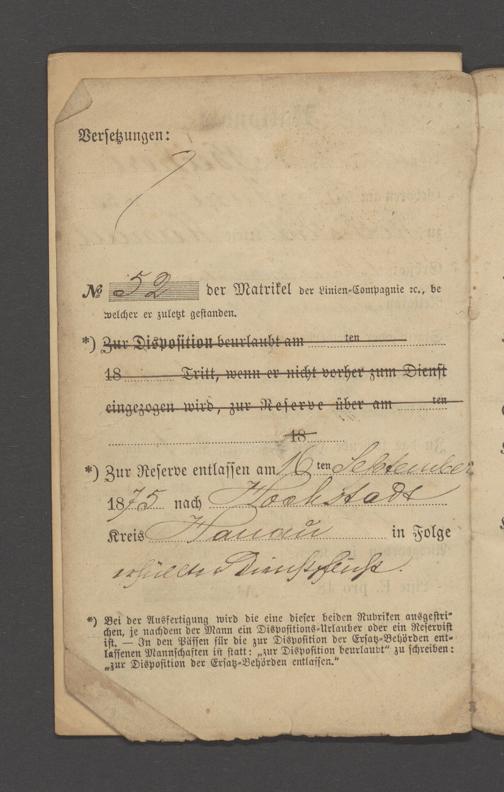 Versetzungen:
№ 52 der Matrikel der Linien-Compagnie ꝛc., be
welcher er zuletzt gestanden.
*) Zur Disposition beurlaubt am ten
18 Tritt, wenn er nicht vorher zum Dienst
eingezogen wird, zur Reserve über am ten
18
*) Zur Reserve entlassen am 16 ten September
1875 nach Hochstadt
Kreis Hanau in Folge
erfüllter Dienstpflicht.
*) Bei der Ausfertigung wird die eine dieser beiden Rubriken ausgestri-
chen, je nachdem der Mann ein Dispositions-Urlauber oder ein Reservist
ist. — In den Pässen für die zur Disposition der Ersatz-Behörden ent-
lassenen Mannschaften ist statt: „zur Disposition beurlaubt“ zu schreiben:
„zur Disposition der Ersatz-Behörden entlassen.“